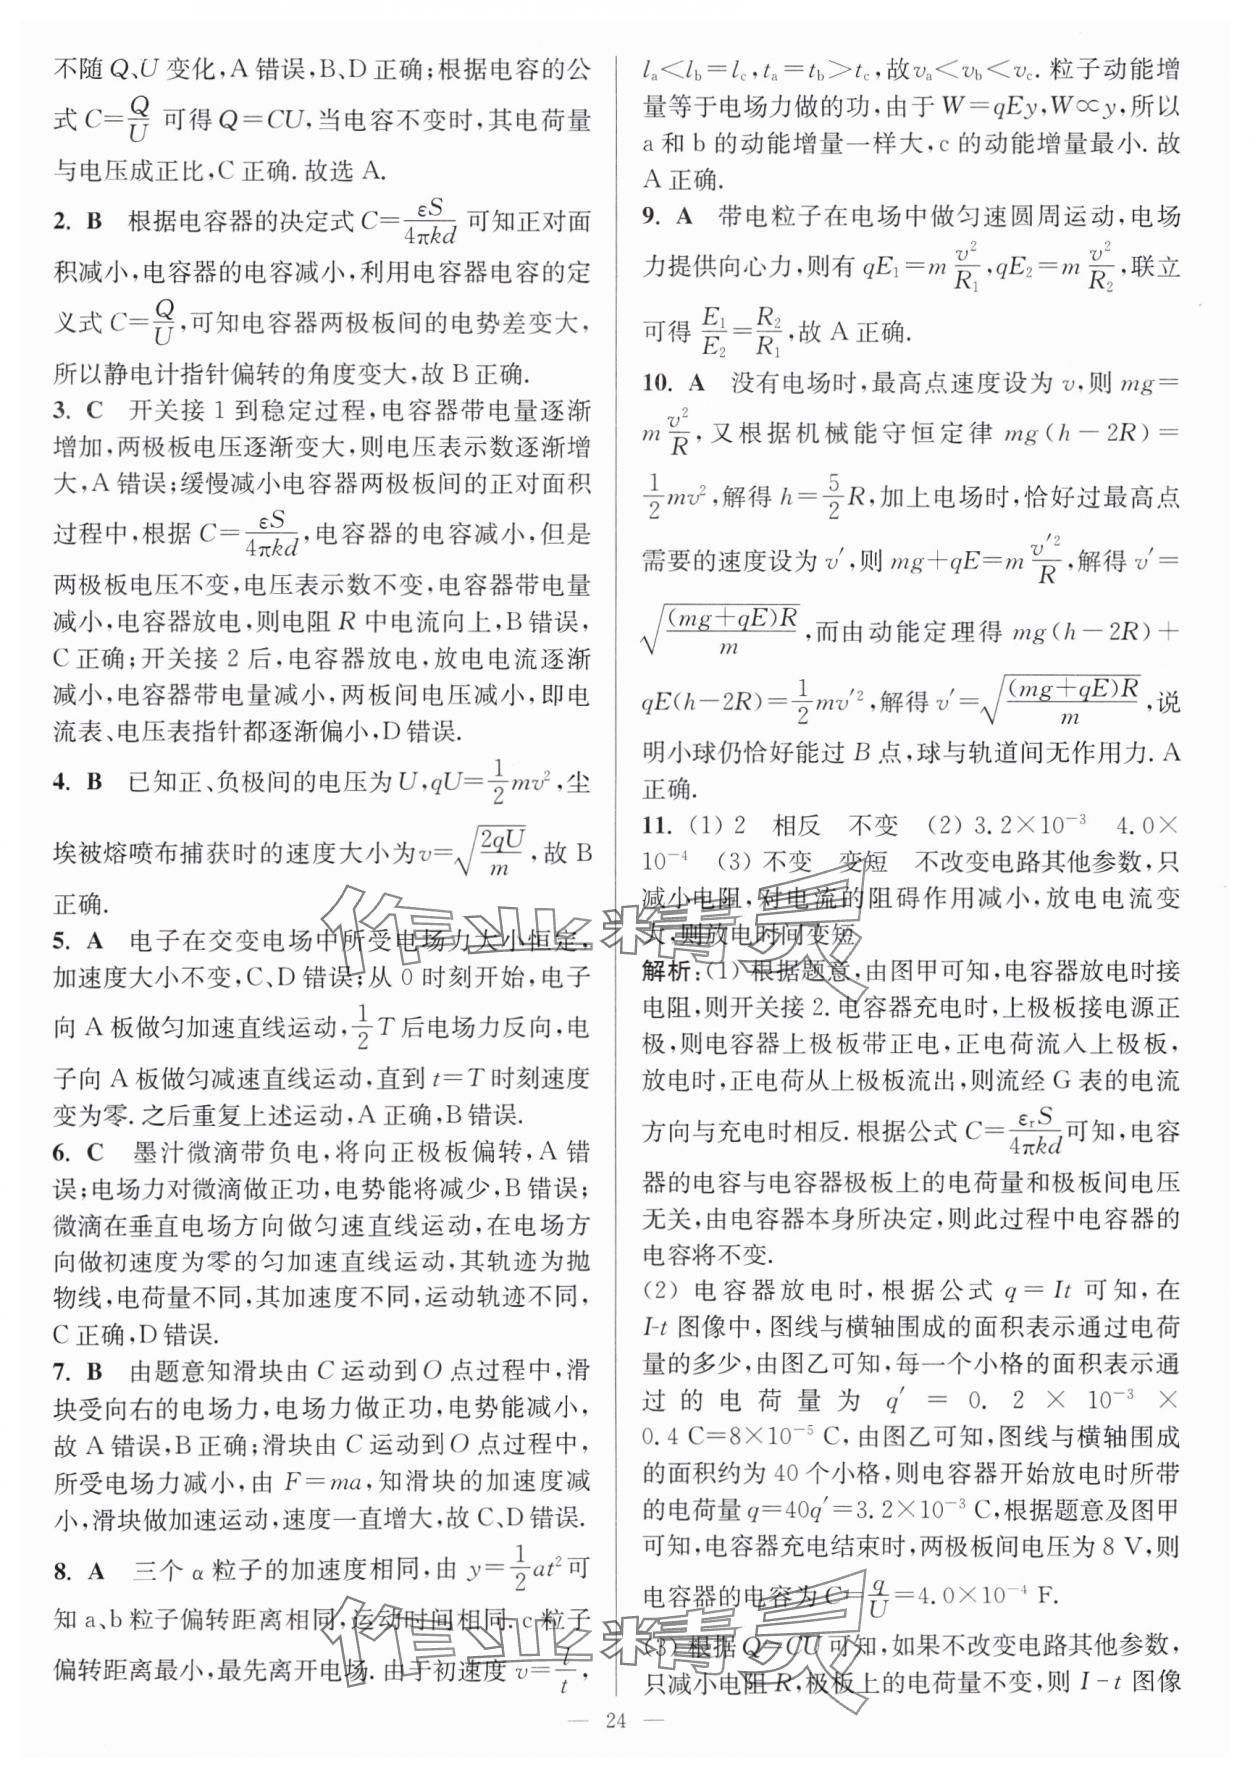 不随 Q、U 变化,A 错误,B、D 正确;根据电容的公
式 C=Q/U 可得 Q=CU,当电容不变时,其电荷量
与电压成正比,C 正确. 故选 A.
2. B 根据电容器的决定式 C=εS/4πkd 可知正对面
积减小,电容器的电容减小,利用电容器电容的定
义式 C=Q/U,可知电容器两极板间的电势差变大,
所以静电计指针偏转的角度变大,故 B 正确.
3. C 开关接 1 到稳定过程,电容器带电量逐渐
增加,两极板电压逐渐变大,则电压表示数逐渐增
大,A 错误;缓慢减小电容器两极板间的正对面积
过程中,根据 C=εS/4πkd,电容器的电容减小,但是
两极板电压不变,电压表示数不变,电容器带电量
减小,电容器放电,则电阻 R 中电流向上,B 错误,
C 正确;开关接 2 后,电容器放电,放电电流逐渐
减小,电容器带电量减小,两板间电压减小,即电
流表、电压表指针都逐渐偏小,D 错误.
4. B 已知正、负极间的电压为 U,qU=1/2 mv²,尘
埃被熔喷布捕获时的速度大小为 v=√(2qU/m),故 B
正确.
5. A 电子在交变电场中所受电场力大小恒定,
加速度大小不变,C、D 错误;从 0 时刻开始,电子
向 A 板做匀加速直线运动,1/2 T 后电场力反向,电
子向 A 板做匀减速直线运动,直到 t=T 时刻速度
变为零. 之后重复上述运动,A 正确,B 错误.
6. C 墨汁微滴带负电,将向正极板偏转,A 错
误;电场力对微滴做正功,电势能将减少,B 错误;
微滴在垂直电场方向做匀速直线运动,在电场方
向做初速度为零的匀加速直线运动,其轨迹为抛
物线,电荷量不同,其加速度不同,运动轨迹不同,
C 正确,D 错误.
7. B 由题意知滑块由 C 运动到 O 点过程中,滑
块受向右的电场力,电场力做正功,电势能减小,
故 A 错误,B 正确;滑块由 C 运动到 O 点过程中,
所受电场力减小,由 F=ma,知滑块的加速度减
小,滑块做加速运动,速度一直增大,故 C、D 错误.
8. A 三个 α 粒子的加速度相同,由 y=1/2 at² 可
知 a、b 粒子偏转距离相同,运动时间相同. c 粒子
偏转距离最小,最先离开电场. 由于初速度 v=l/t,
lₐ<l_b=l_c,tₐ=t_b>t_c,故 vₐ<v_b<v_c. 粒子动能增
量等于电场力做的功,由于 W=qEy,W∝y,所以
a 和 b 的动能增量一样大,c 的动能增量最小. 故
A 正确.
9. A 带电粒子在电场中做匀速圆周运动,电场
力提供向心力,则有 qE₁=m v²/R₁,qE₂=m v²/R₂,联立
可得 E₁/E₂=R₂/R₁,故 A 正确.
10. A 没有电场时,最高点速度设为 v,则 mg=
m v²/R,又根据机械能守恒定律 mg(h-2R)=
1/2 mv²,解得 h=5/2 R,加上电场时,恰好过最高点
需要的速度设为 v′,则 mg+qE=m v′²/R,解得 v′=
√((mg+qE)R/m),而由动能定理得 mg(h-2R)+
qE(h-2R)=1/2 mv′²,解得 v′=√((mg+qE)R/m),说
明小球仍恰好能过 B 点,球与轨道间无作用力. A
正确.
11. (1) 2 相反 不变 (2) 3.2×10⁻³ 4.0×
10⁻⁴ (3) 不变 变短 不改变电路其他参数,只
减小电阻,对电流的阻碍作用减小,放电电流变
大,则放电时间变短
解析:(1) 根据题意,由图甲可知,电容器放电时接
电阻,则开关接 2. 电容器充电时,上极板接电源正
极,则电容器上极板带正电,正电荷流入上极板,
放电时,正电荷从上极板流出,则流经 G 表的电流
方向与充电时相反. 根据公式 C=εᵣS/4πkd 可知,电容
器的电容与电容器极板上的电荷量和极板间电压
无关,由电容器本身所决定,则此过程中电容器的
电容将不变.
(2) 电容器放电时,根据公式 q=It 可知,在
I-t 图像中,图线与横轴围成的面积表示通过电荷
量的多少,由图乙可知,每一个小格的面积表示通
过的电荷量为 q′=0.2×10⁻³×
0.4 C=8×10⁻⁵ C,由图乙可知,图线与横轴围成
的面积约为 40 个小格,则电容器开始放电时所带
的电荷量 q=40q′=3.2×10⁻³ C,根据题意及图甲
可知,电容器充电结束时,两极板间电压为 8 V,则
电容器的电容为 C=q/U=4.0×10⁻⁴ F.
(3) 根据 Q=CU 可知,如果不改变电路其他参数,
只减小电阻 R,极板上的电荷量不变,则 I-t 图像
— 24 —
作业精灵
作业精灵